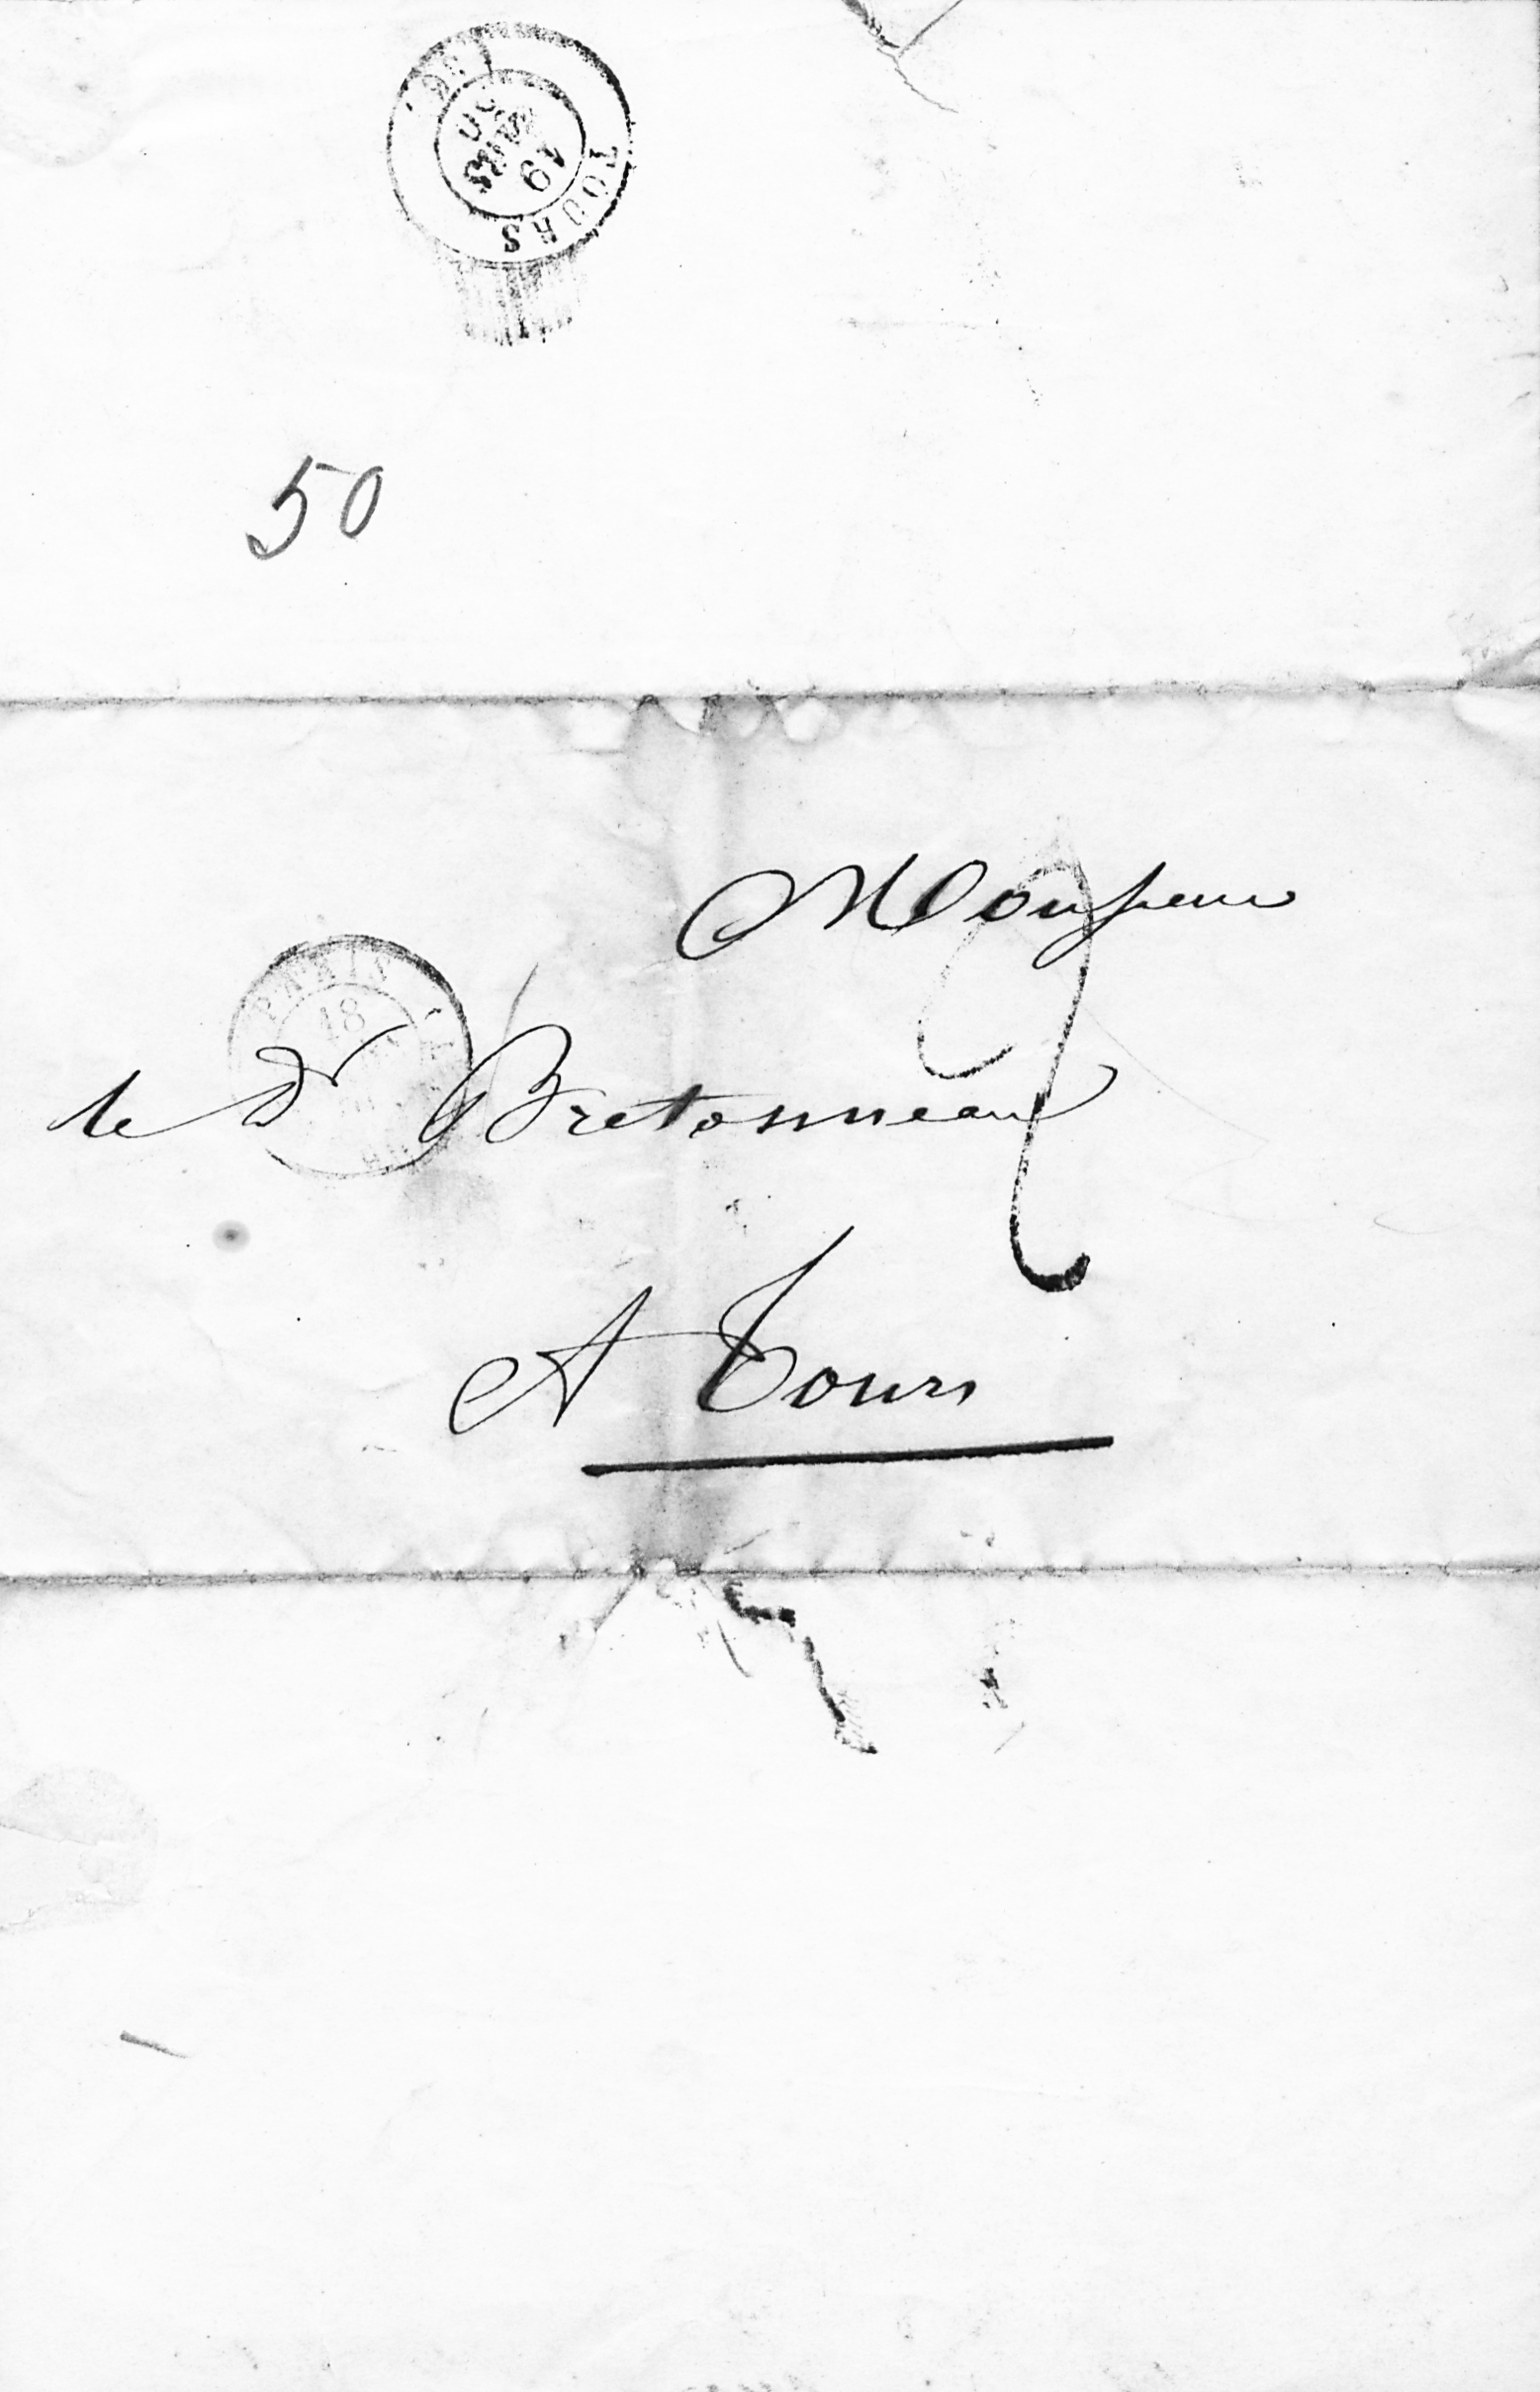 TOURS (36)
19
MARS
50
50
Monsieur
PARIS
18
le Dr Bretonneau
2
A Tours